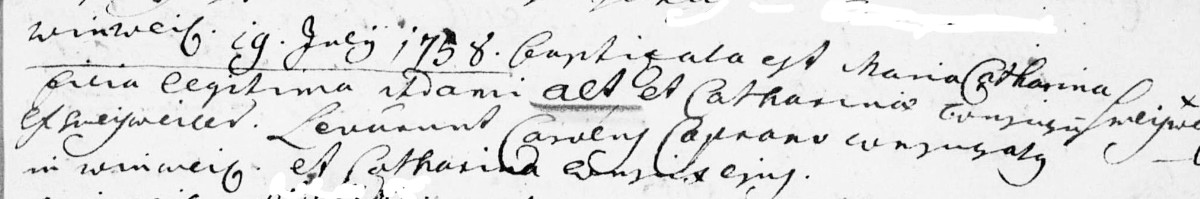 winweis. 19. July 1758. baptizata est Maria Catharina
filia legitima Adami Alt et Catharinæ conjugũ
ex sweijweiler. Levarunt Carolus conjugatus
in winweis. et Catharina ejus.